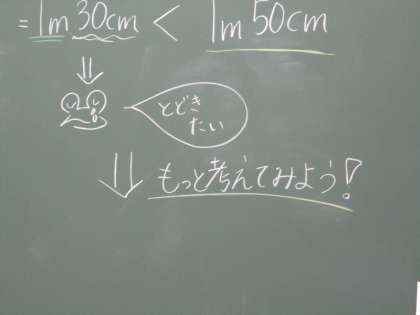 = 1m 30cm < 1m 50cm
とどき
たい
もっと考えてみよう!